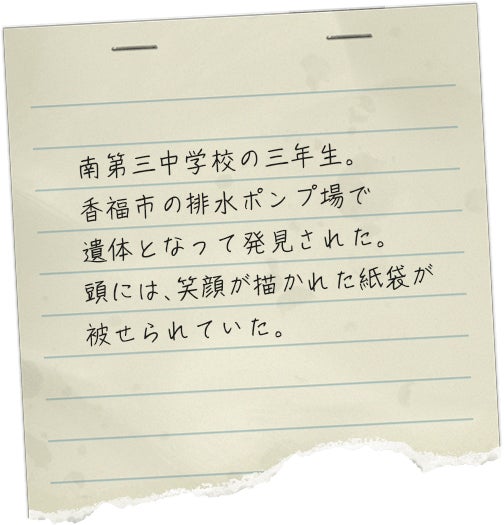 南第三中学校の三年生。
香福市の排水ポンプ場で
遺体となって発見された。
頭には、笑顔が描かれた紙袋が
被せられていた。